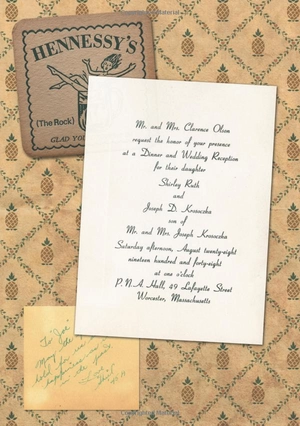 HENNESSY'S
(The Rock)
GLAD YO
Mr. and Mrs. Clarence Olson
request the honor of your presence
at a Dinner and Wedding Reception
for their daughter
Shirley Ruth
and
Joseph D. Krosoczka
son of
Mr. and Mrs. Joseph Krosoczka
Saturday afternoon, August twenty-eight
nineteen hundred and forty-eight
at one o'clock
P. N. A. Hall, 49 Lafayette Street
Worcester, Massachusetts
To "Joe"
May the